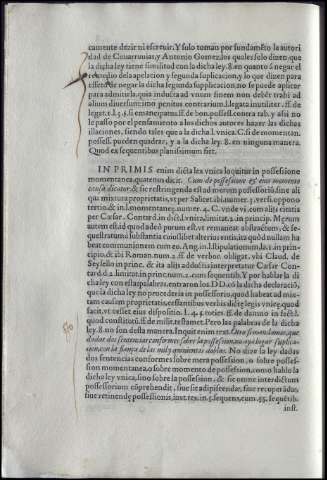 camente dezir ni escreuir. Y solo toman por fundamẽto la autori
dad de Couarruuias, y Antonio Gomez, los quales solo dizen que
la dicha ley tiene similitud con la dicha ley. 8. en quanto à negar el
remedio dela apelacion y segunda suplicacion, y lo que dizen para
effeto de negar la dicha segunda supplicacion, no se puede aplicar
para admitirla, quia inducta ad vnum finem non debẽt trahi ad
alium diuersum: imo penitus contrarium. l. legata inutiliter. ff. de
legat.
le passo por el pensamiento a los dichos autores hazer las dichas
illaciones, siendo tales que a la dicha l. vnica. C. si de momentan.
possess. pueden quadrar, y a la dicha ley. 8. en ninguna manera.
Quod ex sequentibus planissimum fiet.
IN PRIMIS enim dicta lex vnica loquitur in possessione
momentanea, quatenus dicit. Cum de possessione & eius momento
causa dicatur, & sic restringenda est ad merum possessoriũ sine ali
qua mixtura proprietatis, vt per Salicet. ibi. numer. 3. vers. oppono
tertio, & in l. momentaneæ. numer. 4. C. vnde vi. cum alijs citatis
per Cæsar. Contard. in dict. l. vnica, limitat. 2. in princip. Merum
autem est id quod adeò purum est, vt remaneat abstractum, & se-
questratum à substantia cuiuslibet alterius entitatis, quòd nullam ha
beat communionem cum eo. Ang. in l. stipulationum. la. 2. in prin-
cipio, & ibi Roman. num. 2. ff. de verbor. obligat. vbi Claud. de
Seyssello in princ. & ita alijs adductis interpretatur Cæsar Con-
tard. d. 2. limitat. in princ. num. 2. cum sequentib. Y por hablar la di
cha ley con estas palabras, entraron los DD. cõ la dicha declaració,
que la dicha ley no procederia in possessorio, quod habeat ad mix-
tam causam proprietatis, essentibus verbis dictę legis vnicę, quod
facit, vt cesset eius dispositio. l. 4. §. toties. ff. de damno in fecto. l.
quod constituit. ff. de milit. testamet. Pero las palabras de la dicha
ley. 8. no son desta manera. Inquit enim text. Otrosi mandamos, que
dadas dos sentencias conformes sobre la possession, no aya lugar suplica-
cion, con la fiança de las mil y quinientas doblas. No dize la ley dadas
dos sentencias conformes sobre mera possession, o sobre posses-
sion momentanea, o sobre momento de possession, como hablo la
dicha ley vnica, sino sobre la possession, & sic omne interdictum
possessorium cóprehendit, siue sit adipiscendæ, siue recuperádæ,
siue retinendę possessionis, iust. tex. in. §. sequens, cum. §§. sequẽtib.
inst.